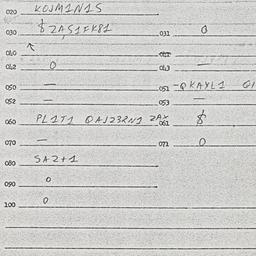 020 KOJM1N1S
030 $ 2A,S1FK81 031 0
040 041
042 0 043 —
050 — 051 -QKAYL1
052 — 053 —
060 PL1T1 0AJ23RN1 2AX 061 $
070 — 071 0
080 SA2+1
090 0
100 0